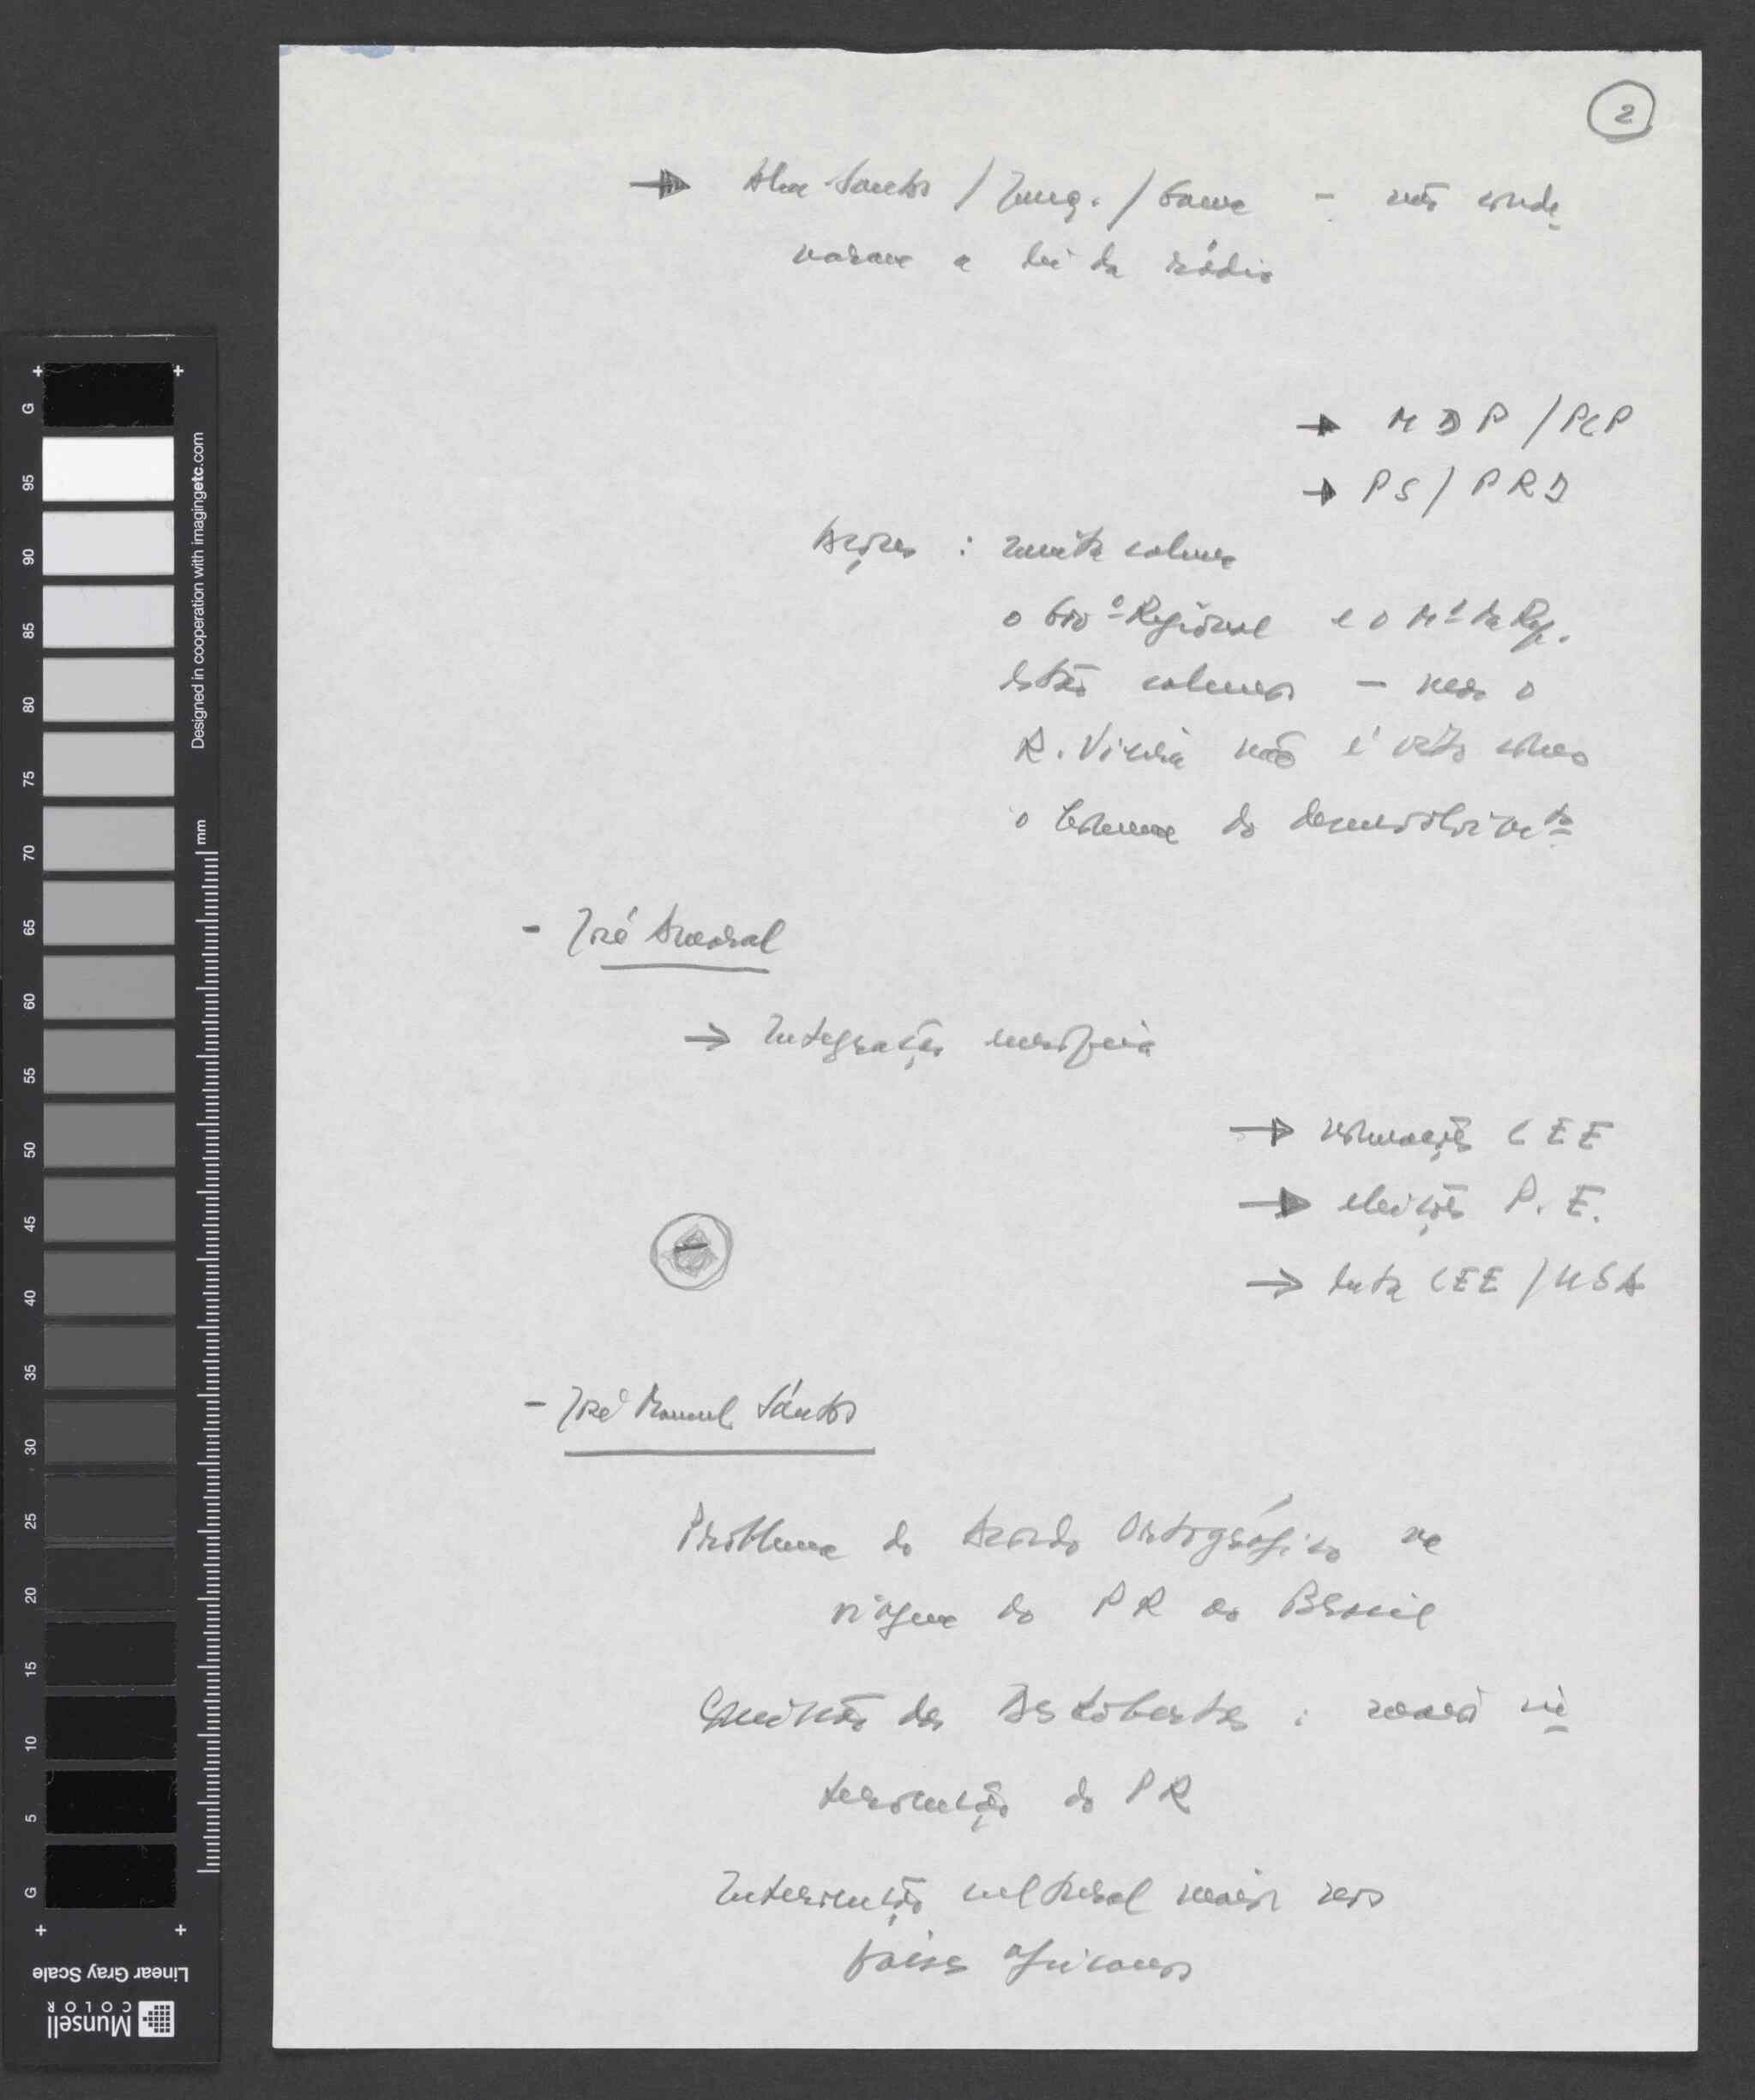 2
→ Alm. Santos / Zenq. / Gama - não conde
naram a lei da rádio
→ MDP / PCP
→ PS / PRD
Açores : muita calma
o Gov.º Regional e o M.º da Rep.
estão calmos - mas o
R. Vieira não é visto como
o homem do desenvolvim.to
- José Amaral
→ Integração europeia
→ eleições P. E.
→ luta CEE / USA
- José Manuel Santos
Problema do Acordo Ortográfico na
viagem do PR ao Brasil
Comissão dos Descobertas : maior in
tervenção do PR
Intervenção cultural maior nos
países africanos
+ +
G 95 90 85 80 75 70 65 60 55 50 45 40 35 30 25 20 15 10 5 G
+ +
Designed in cooperation with imagingetc.com
mm
Linear Gray Scale
Munsell
COLOR